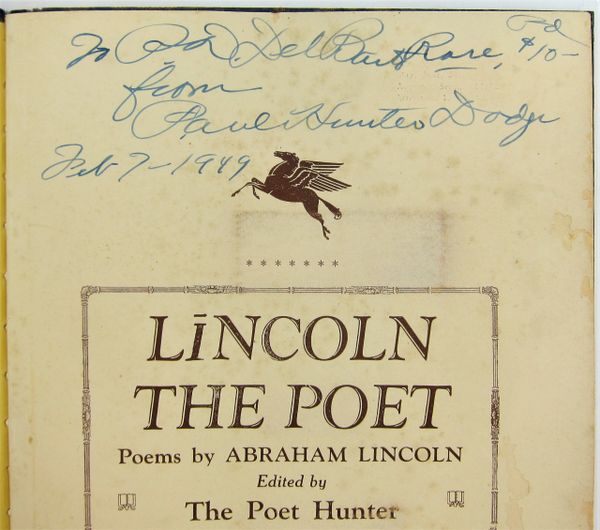 To
Pd
$10-
from
Paul Hunter Dodge
Feb 7-1949
* * * * * * *
LINCOLN
THE POET
Poems by ABRAHAM LINCOLN
Edited by
The Poet Hunter